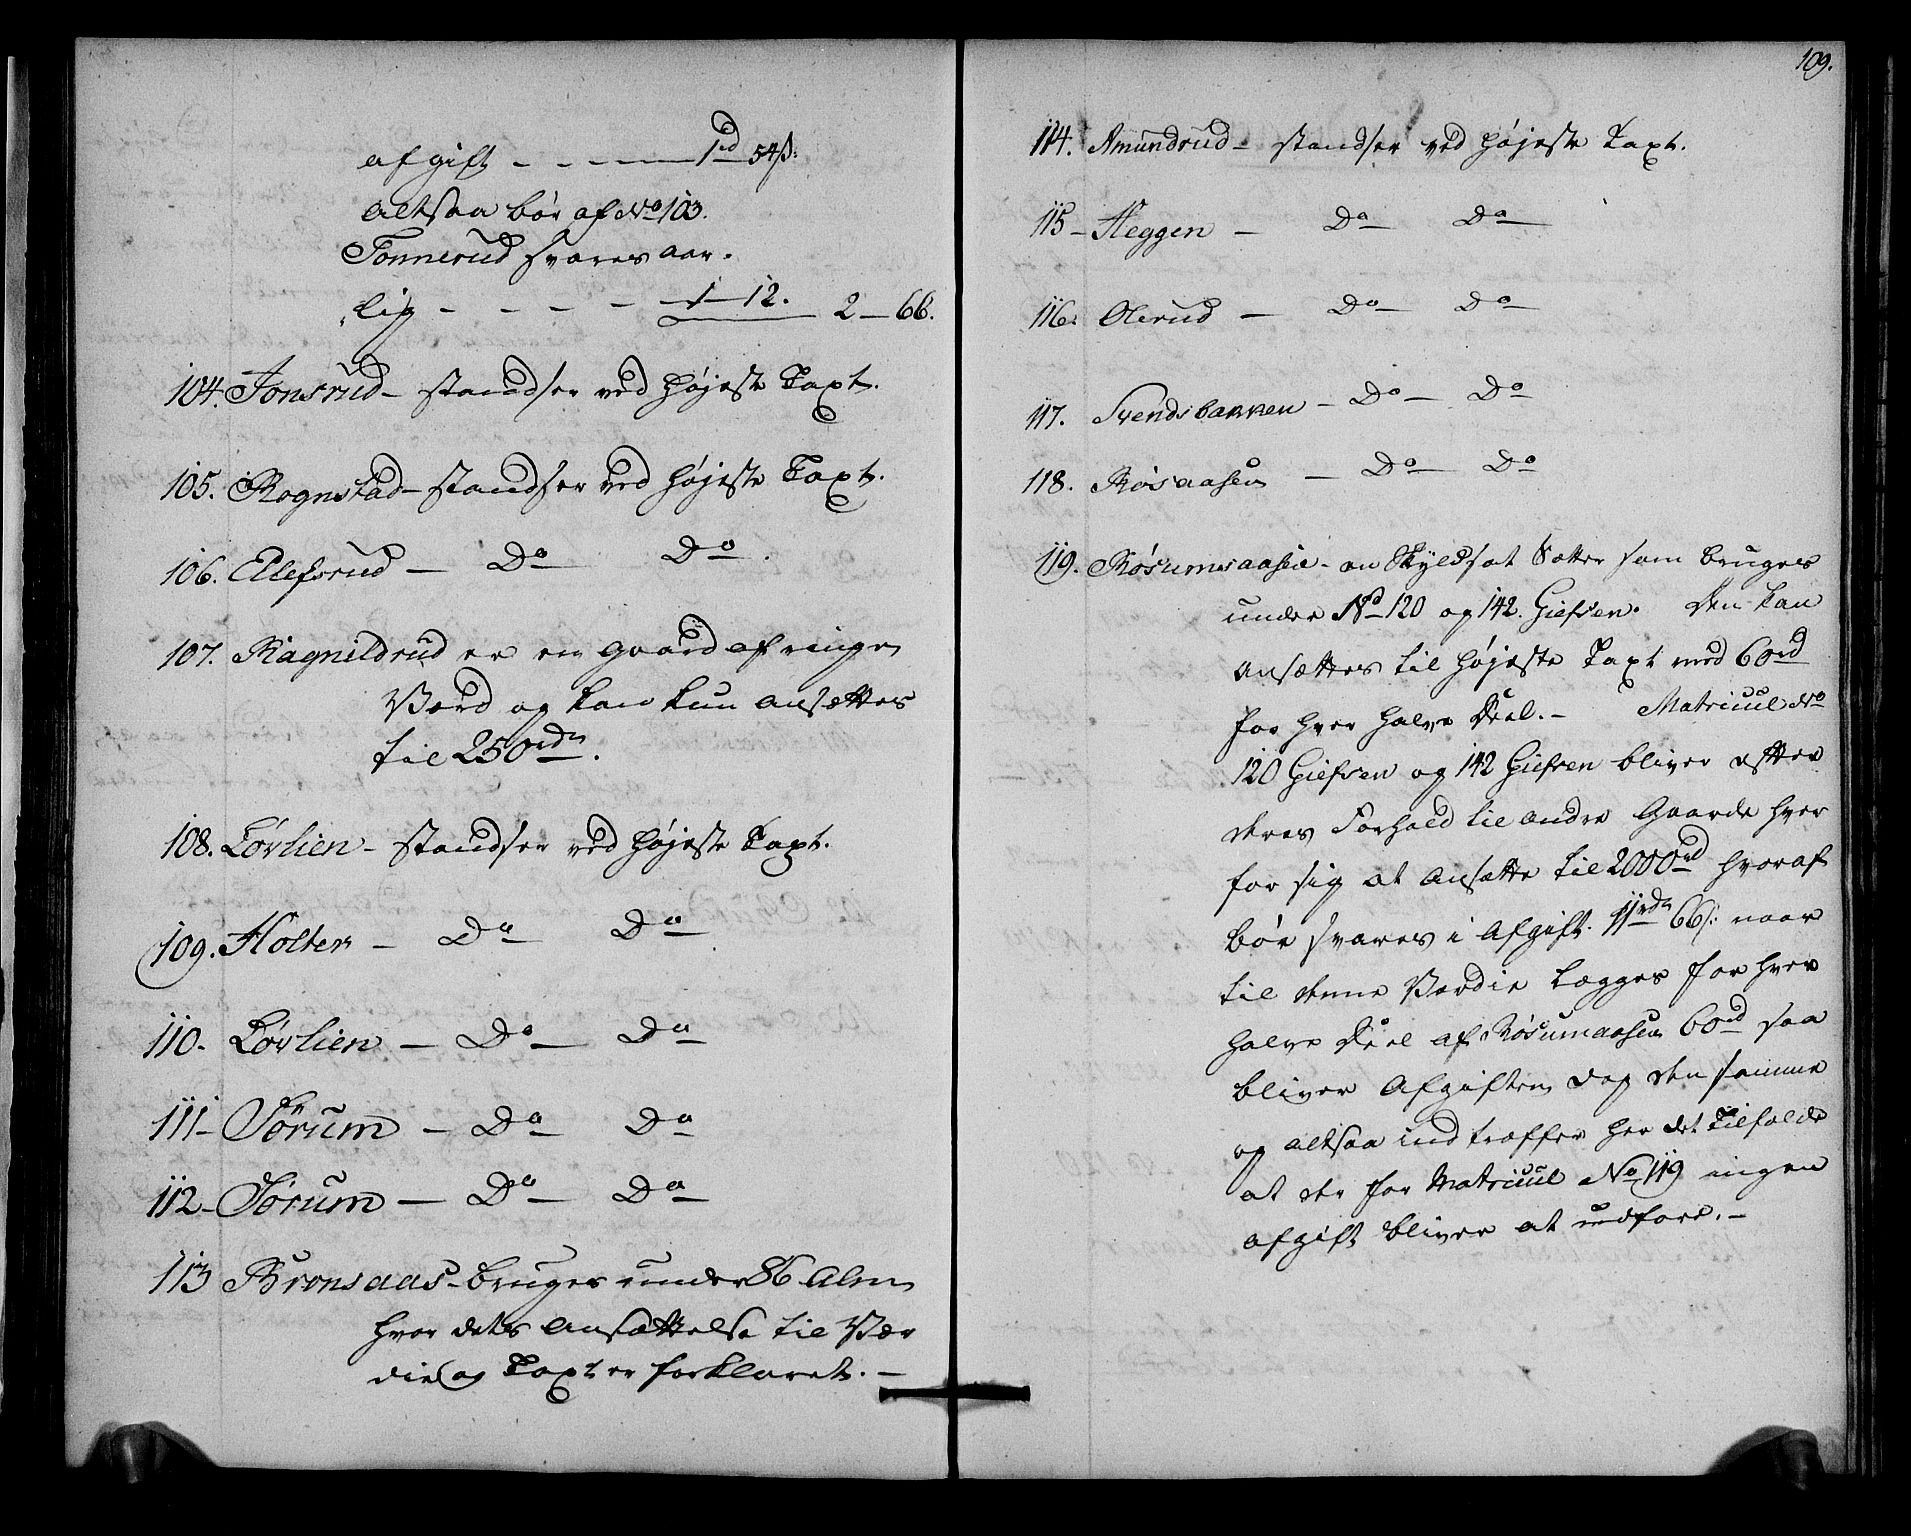 afgift - - - - 1rd 54ß:
altsaa bør af No 103.
Tonnerud svares aar.
lig - - - - 1 - 12. 2 - 66.
104. Jonsrud - standser ved høieste Taxt.
105. Rognstad - standser ved høieste Taxt.
106. Ellefsrud - Do Do.
107. Ragnildrud er en gaard af ringe
Værd og kan kun ansættes
til 250rdr.
108. Lørlien - standser ved høieste Taxt.
109. Holter - Do Do
110. Lørlien - Do Do
111 - Sørum - Do Do
112 - Sørum - Do Do
113 Bronsaas - bruges under 86 Alm
hvor dets Ansættelse til Vær
die og Taxt er forklaret. -
109.
114. Amundrud - standser ved høieste Taxt.
115 - Heggen - Do Do
116. Olerud - Do Do
117. Svendsbakken - Do Do
118. Røisaasen - Do Do
119. Røsumsaasen - en Skyldsat Sætter som bruges
under No 120 og 142. Giefsen. Den kan
ansættes til høieste Taxt med 60rd
for hver halve Deel. - Matricul No
120 Giefsen og 142 Giefsen bliver efter
deres Forhold til andre Gaarde hver
for sig at ansætte til 2000rd hvoraf
bør svares i Afgift. 11rdr 66ß: naar
til denne Værdie lægges for hver
halve Deel af Røsumaasen 60rd saa
bliver Afgiften dog den samme
og altsaa indtræffer her det Tilfælde
at der for Matricul No 119 ingen
afgift bliver at udføre. -